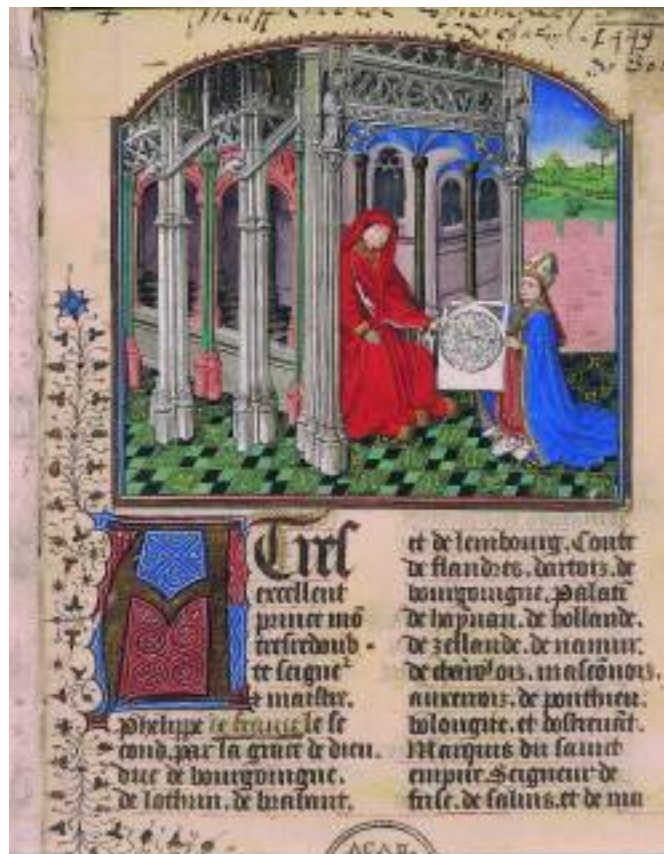 de 
1449
A Tres
excellent
prince mõ
tresredoub-
te seigne
& maistre.
Phelippe de france le se
cond, par la grace de dieu.
duc de bourgoingne.
de lothrin. de brabant.
et de lembourg. Conte
de flandres. dartois. de
bourgoingne. Palati
de haynan. de hollande.
de zellande. de namur.
de charolois. masconnois.
auxerrois. de ponthieu.
bolongne. et dostreuãt.
Marquis du saint
empire. Seigneur de
frise. de salins. et de ma
ACAD.